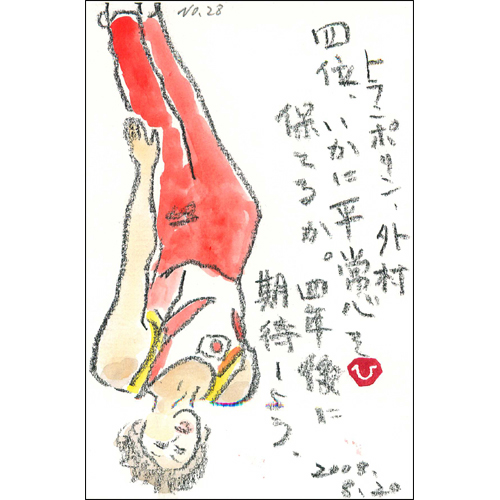 No.28
トランポリン、外村
四位、いかに平常心を
保てるか。四年後に
期待しよう、
ひ
2008.
8.20